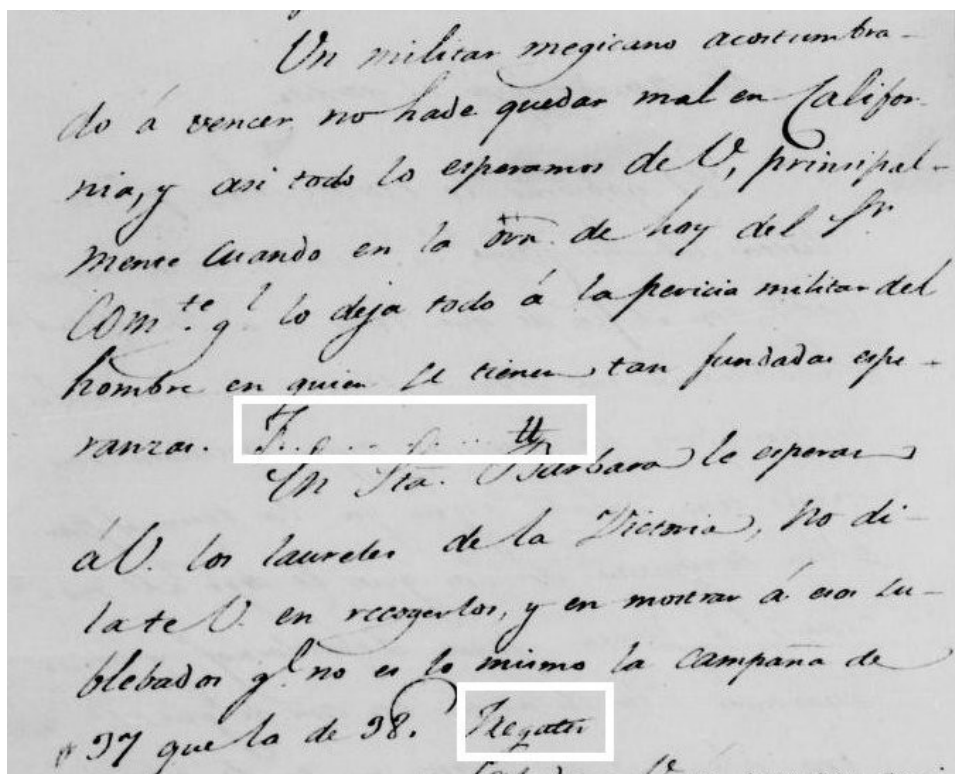 Un militar megicano acostumbra-
do á vencer, no hade quedar mal en Califor-
nia, y asi todo lo esperamos de V, principal-
mente cuando en la orn. de hoy del Sr.
Com.te gl lo deja todo á la pericia militar del
hombre en quien se tienen tan fundadas espe-
ranzas.
En Sta. Barbara le esperan
á V. los laureles de la Victoria, no di-
late V. en recogerlos, y en mostrar á esos su-
blebados q.e no es lo mismo la campaña de
37 que la de 38.